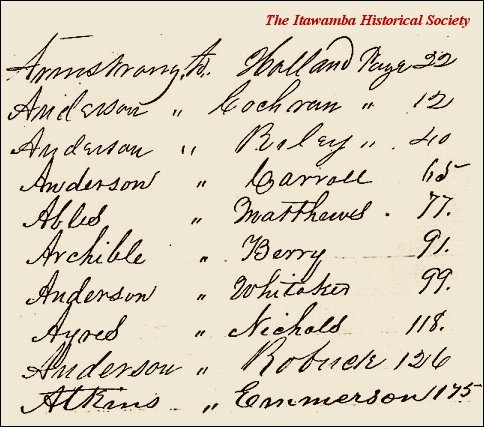 The Itawamba Historical Society
Armstrong & Holland Page 22
Anderson " Cochran " 12
Anderson " Riley " 40
Anderson " Carroll 65
Ables " Matthews . 77.
Archible " Berry 91.
Anderson " Whitaker 99.
Ayres " Nichols 118.
Anderson " Robuck 126
Atkins " Emmerson 175